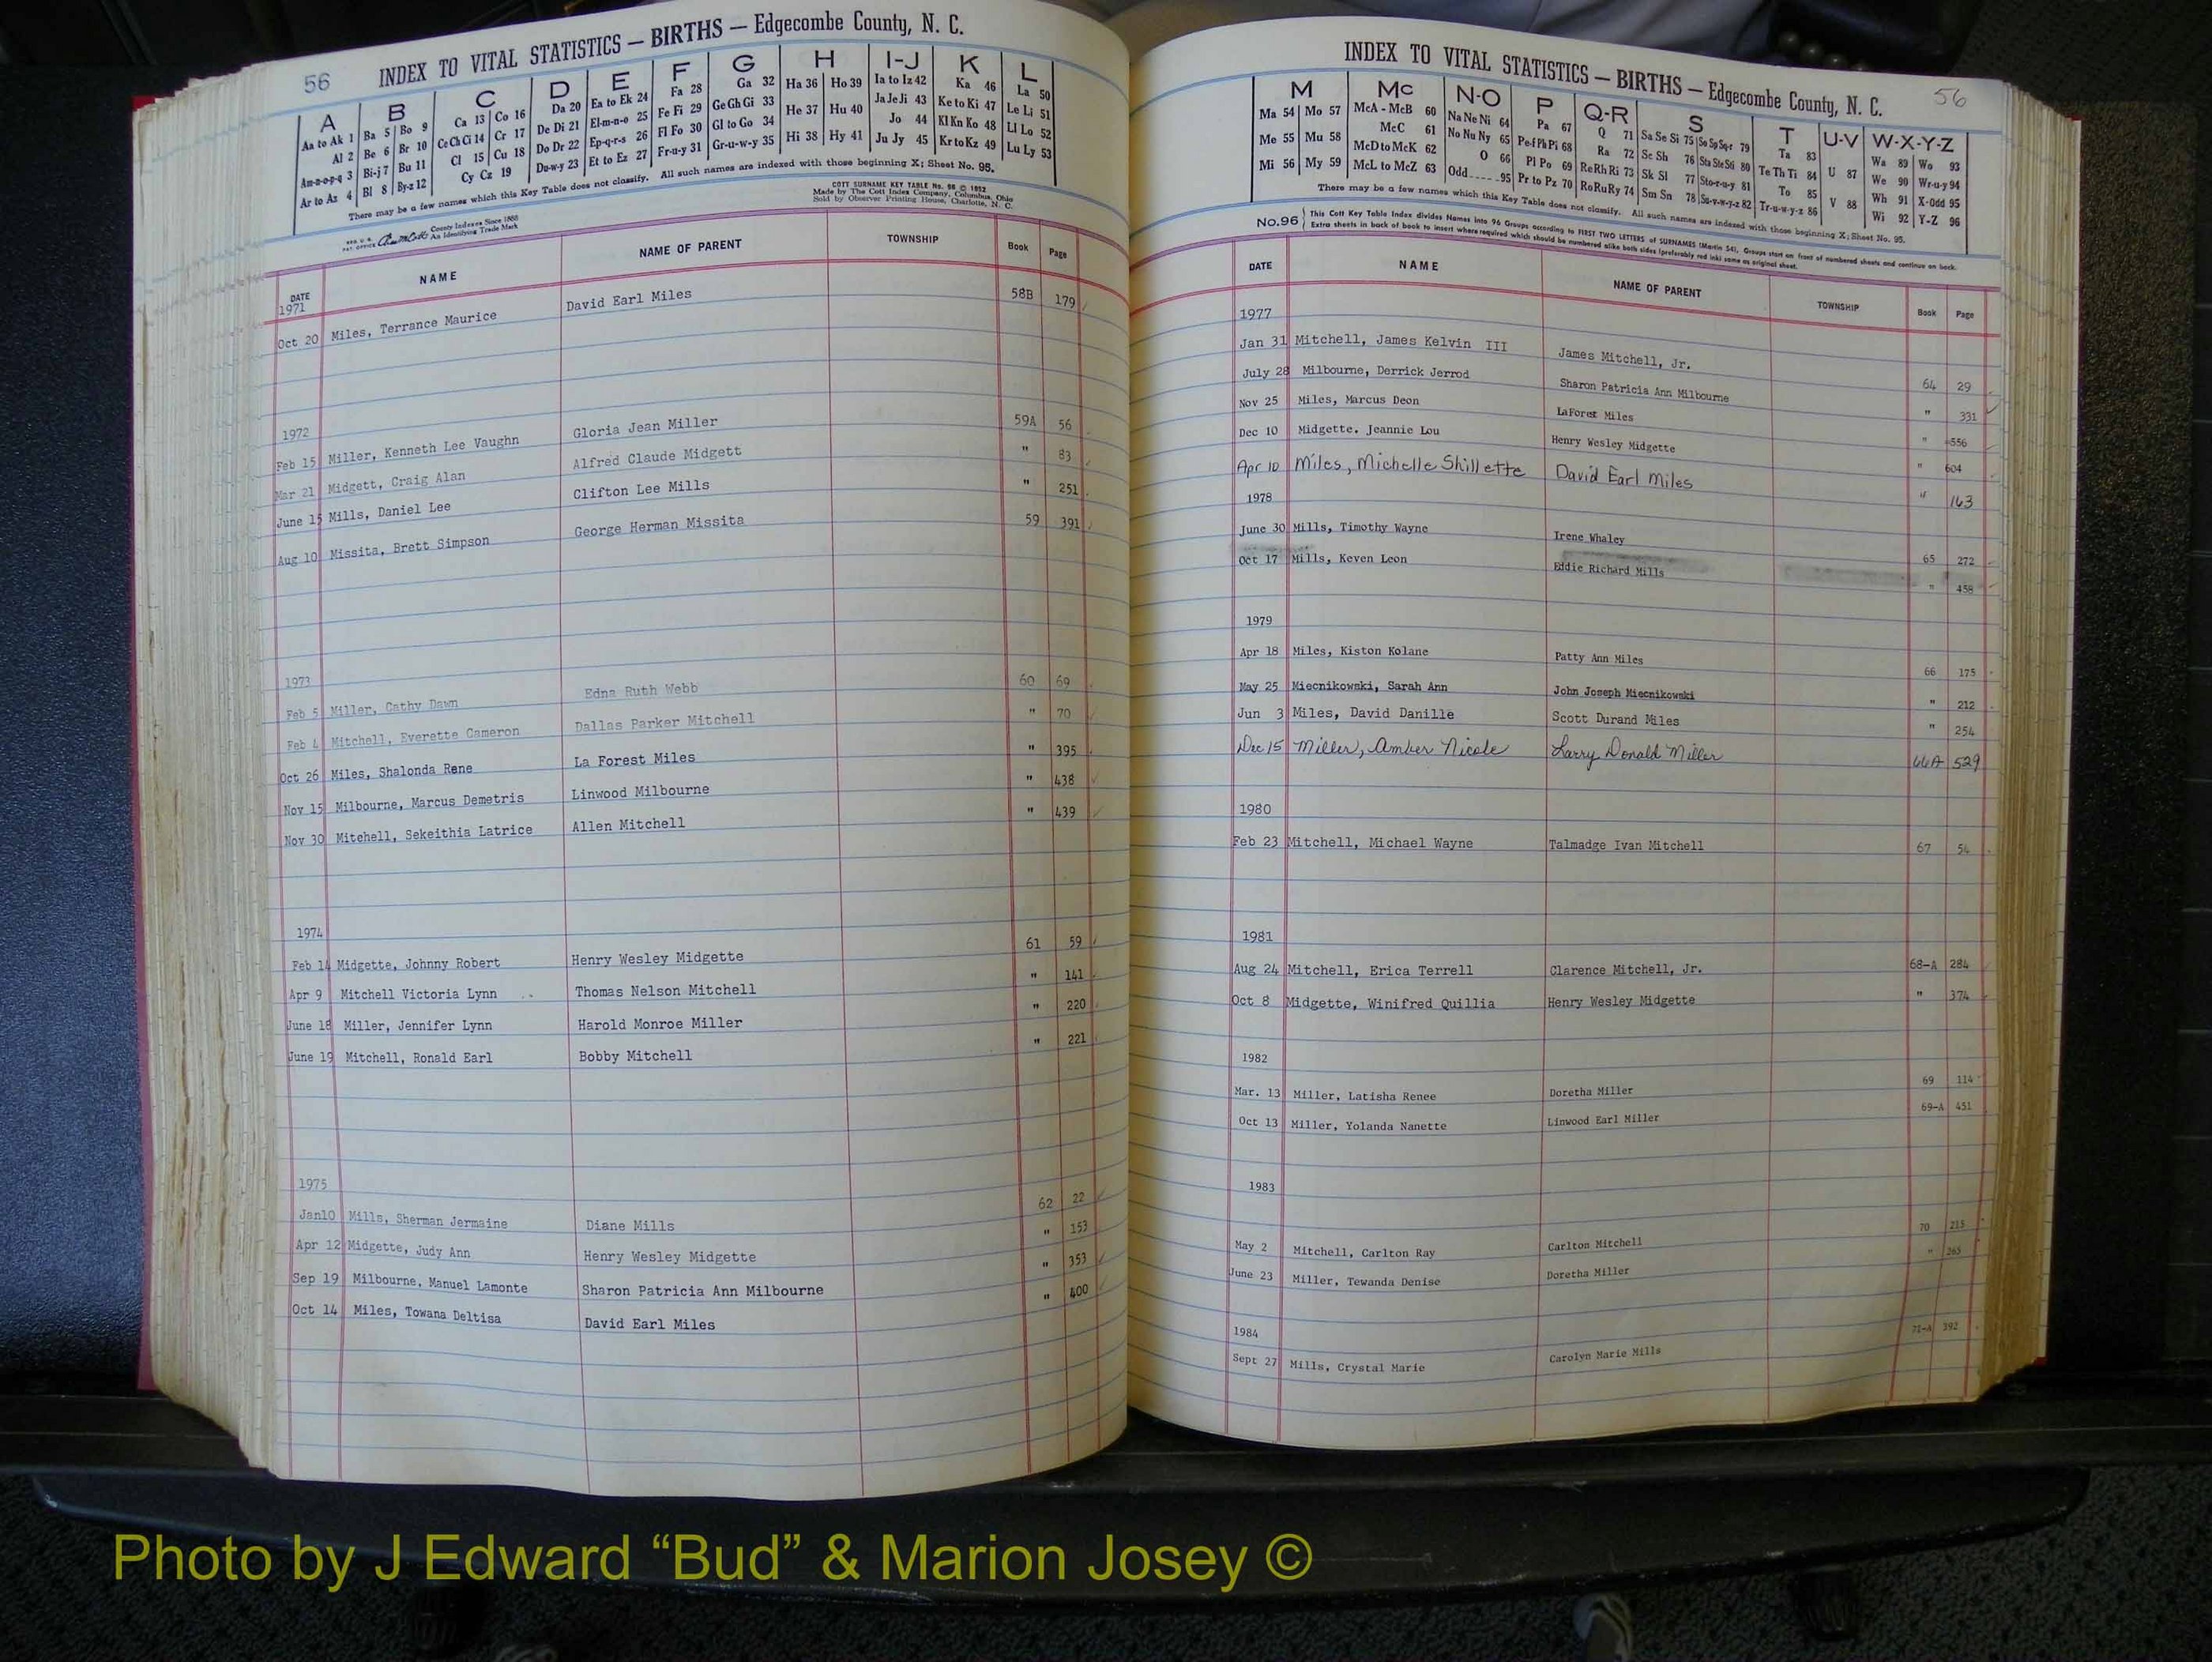 56 INDEX TO VITAL STATISTICS — BIRTHS — Edgecombe County, N. C.
A B C D E F G H I-J K L
Aa to Ak 1 Ba 5 Bo 9 Ca 13 Co 16 Da 20 Ea to Ek 24 Fa 28 Ga 32 Ha 36 Ho 39 Ia to Iz 42 Ka 46 La 50
Al 2 Be 6 Br 10 Ce Ch Ci 14 Cr 17 De Di 21 El-m-n-o 25 Fe Fi 29 Ge Gh Gi 33 He 37 Hu 40 Ja Je Ji 43 Ke to Ki 47 Le Li 51
Am-n-o-p-q 3 Bi-j 7 Bu 11 Cl 15 Cu 18 Do Dr 22 Ep-q-r-s 26 Fl Fo 30 Gl to Go 34 Hi 38 Hy 41 Jo 44 Kl Kn Ko 48 Ll Lo 52
Ar to Az 4 Bl 8 By-z 12 Cy Cz 19 Du-w-y 23 Et to Ez 27 Fr-u-y 31 Gr-u-w-y 35 Ju Jy 45 Kr to Kz 49 Lu Ly 53
There may be a few names which this Key Table does not classify. All such names are indexed with those beginning X; Sheet No. 95.
COTT SURNAME KEY TABLE No. 96 © 1952
Made by The Cott Index Company, Columbus, Ohio
Sold by Observer Printing House, Charlotte, N. C.
County Indexes Since 1888
An Identifying Trade Mark
DATE NAME NAME OF PARENT TOWNSHIP Book Page
1971
Oct 20 Miles, Terrance Maurice David Earl Miles 58B 179
1972
Feb 15 Miller, Kenneth Lee Vaughn Gloria Jean Miller 59A 56
Mar 21 Midgett, Craig Alan Alfred Claude Midgett " 83
June 15 Mills, Daniel Lee Clifton Lee Mills " 251
Aug 10 Missita, Brett Simpson George Herman Missita 59 391
1973
Feb 5 Miller, Cathy Dawn Edna Ruth Webb 60 69
Feb 4 Mitchell, Everette Cameron Dallas Parker Mitchell " 70
Oct 26 Miles, Shalonda Rene La Forest Miles " 395
Nov 15 Milbourne, Marcus Demetris Linwood Milbourne " 438
Nov 30 Mitchell, Sekeithia Latrice Allen Mitchell " 439
1974
Feb 14 Midgette, Johnny Robert Henry Wesley Midgette 61 59
Apr 9 Mitchell Victoria Lynn Thomas Nelson Mitchell " 141
June 18 Miller, Jennifer Lynn Harold Monroe Miller " 220
June 19 Mitchell, Ronald Earl Bobby Mitchell " 221
1975
Jan10 Mills, Sherman Jermaine Diane Mills 62 22
Apr 12 Midgette, Judy Ann Henry Wesley Midgette " 153
Sep 19 Milbourne, Manuel Lamonte Sharon Patricia Ann Milbourne " 353
Oct 14 Miles, Towana Deltisa David Earl Miles " 400
INDEX TO VITAL STATISTICS — BIRTHS — Edgecombe County, N. C. 56
M Mc N-O P Q-R S T U-V W-X-Y-Z
Ma 54 Mo 57 McA - McB 60 Na Ne Ni 64 Pa 67 Q 71 Sa Se Si 75 So Sp Sq-r 79 Ta 83 U 87 Wa 89 Wo 93
Me 55 Mu 58 McC 61 No Nu Ny 65 Pe-f Ph Pi 68 Ra 72 Sc Sh 76 Sta Ste Sti 80 Te Th Ti 84 V 88 We 90 Wr-u-y 94
Mi 56 My 59 McD to McK 62 O 66 Pl Po 69 Re Rh Ri 73 Sk Sl 77 Sto-r-u-y 81 To 85 Wh 91 X-Odd 95
McL to McZ 63 Odd 95 Pr to Pz 70 Ro Ru Ry 74 Sm Sn 78 Su-v-w-y-z 82 Tr-u-w-y-z 86 Wi 92 Y-Z 96
There may be a few names which this Key Table does not classify. All such names are indexed with those beginning X; Sheet No. 95.
No. 96 This Cott Key Table Index divides Names into 96 Groups according to FIRST TWO LETTERS of SURNAMES (Martin 54). Groups start on front of numbered sheets and continue on back.
Extra sheets in back of book to insert where required which should be numbered alike both sides (preferably red ink) same as original sheet.
DATE NAME NAME OF PARENT TOWNSHIP Book Page
1977
Jan 31 Mitchell, James Kelvin III James Mitchell, Jr. 64 29
July 28 Milbourne, Derrick Jerrod Sharon Patricia Ann Milbourne " 331
Nov 25 Miles, Marcus Deon LaForest Miles " 556
Dec 10 Midgette, Jeannie Lou Henry Wesley Midgette " 604
Apr 10 Miles, Michelle Shillette David Earl Miles " 163
1978
June 30 Mills, Timothy Wayne Irene Whaley 65 272
Oct 17 Mills, Keven Leon Eddie Richard Mills " 458
1979
Apr 18 Miles, Kiston Kolane Patty Ann Miles 66 175
May 25 Miecnikowski, Sarah Ann John Joseph Miecnikowski " 212
Jun 3 Miles, David Danille Scott Durand Miles " 254
Dec 15 Miller, Amber Nicole Larry Donald Miller 66A 529
1980
Feb 23 Mitchell, Michael Wayne Talmadge Ivan Mitchell 67 54
1981
Aug 24 Mitchell, Erica Terrell Clarence Mitchell, Jr. 68-A 284
Oct 8 Midgette, Winifred Quillia Henry Wesley Midgette " 374
1982
Mar. 13 Miller, Latisha Renee Doretha Miller 69 114
Oct 13 Miller, Yolanda Nanette Linwood Earl Miller 69-A 451
1983
May 2 Mitchell, Carlton Ray Carlton Mitchell 70 215
June 23 Miller, Tewanda Denise Doretha Miller " 265
1984
Sept 27 Mills, Crystal Marie Carolyn Marie Mills 71-A 392
Photo by J Edward “Bud” & Marion Josey ©